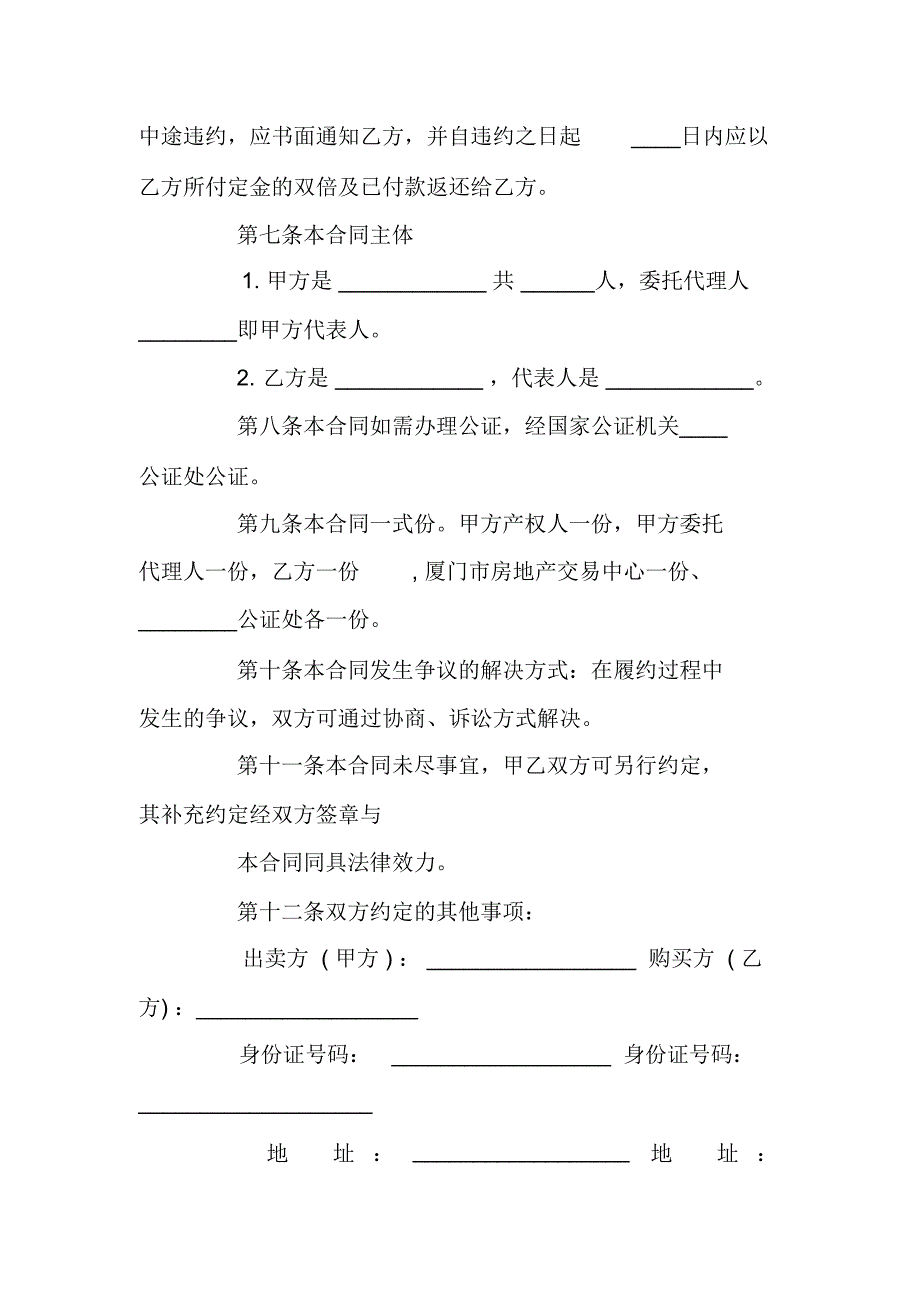 中途违约，应书面通知乙方，并自违约之日起 ____日内应以
乙方所付定金的双倍及已付款返还给乙方。
第七条本合同主体
1. 甲方是 ____________ 共 ______人，委托代理人
________即甲方代表人。
2. 乙方是 ____________ ，代表人是 ____________。
第八条本合同如需办理公证，经国家公证机关____
公证处公证。
第九条本合同一式份。甲方产权人一份，甲方委托
代理人一份，乙方一份 , 厦门市房地产交易中心一份、
________公证处各一份。
第十条本合同发生争议的解决方式：在履约过程中
发生的争议，双方可通过协商、诉讼方式解决。
第十一条本合同未尽事宜，甲乙双方可另行约定，
其补充约定经双方签章与
本合同同具法律效力。
第十二条双方约定的其他事项：
出卖方 ( 甲方 ) ： _________________ 购买方 ( 乙
方) ： __________________
身份证号码： __________________ 身份证号码：
___________________
地 址 ： __________________ 地 址 ：